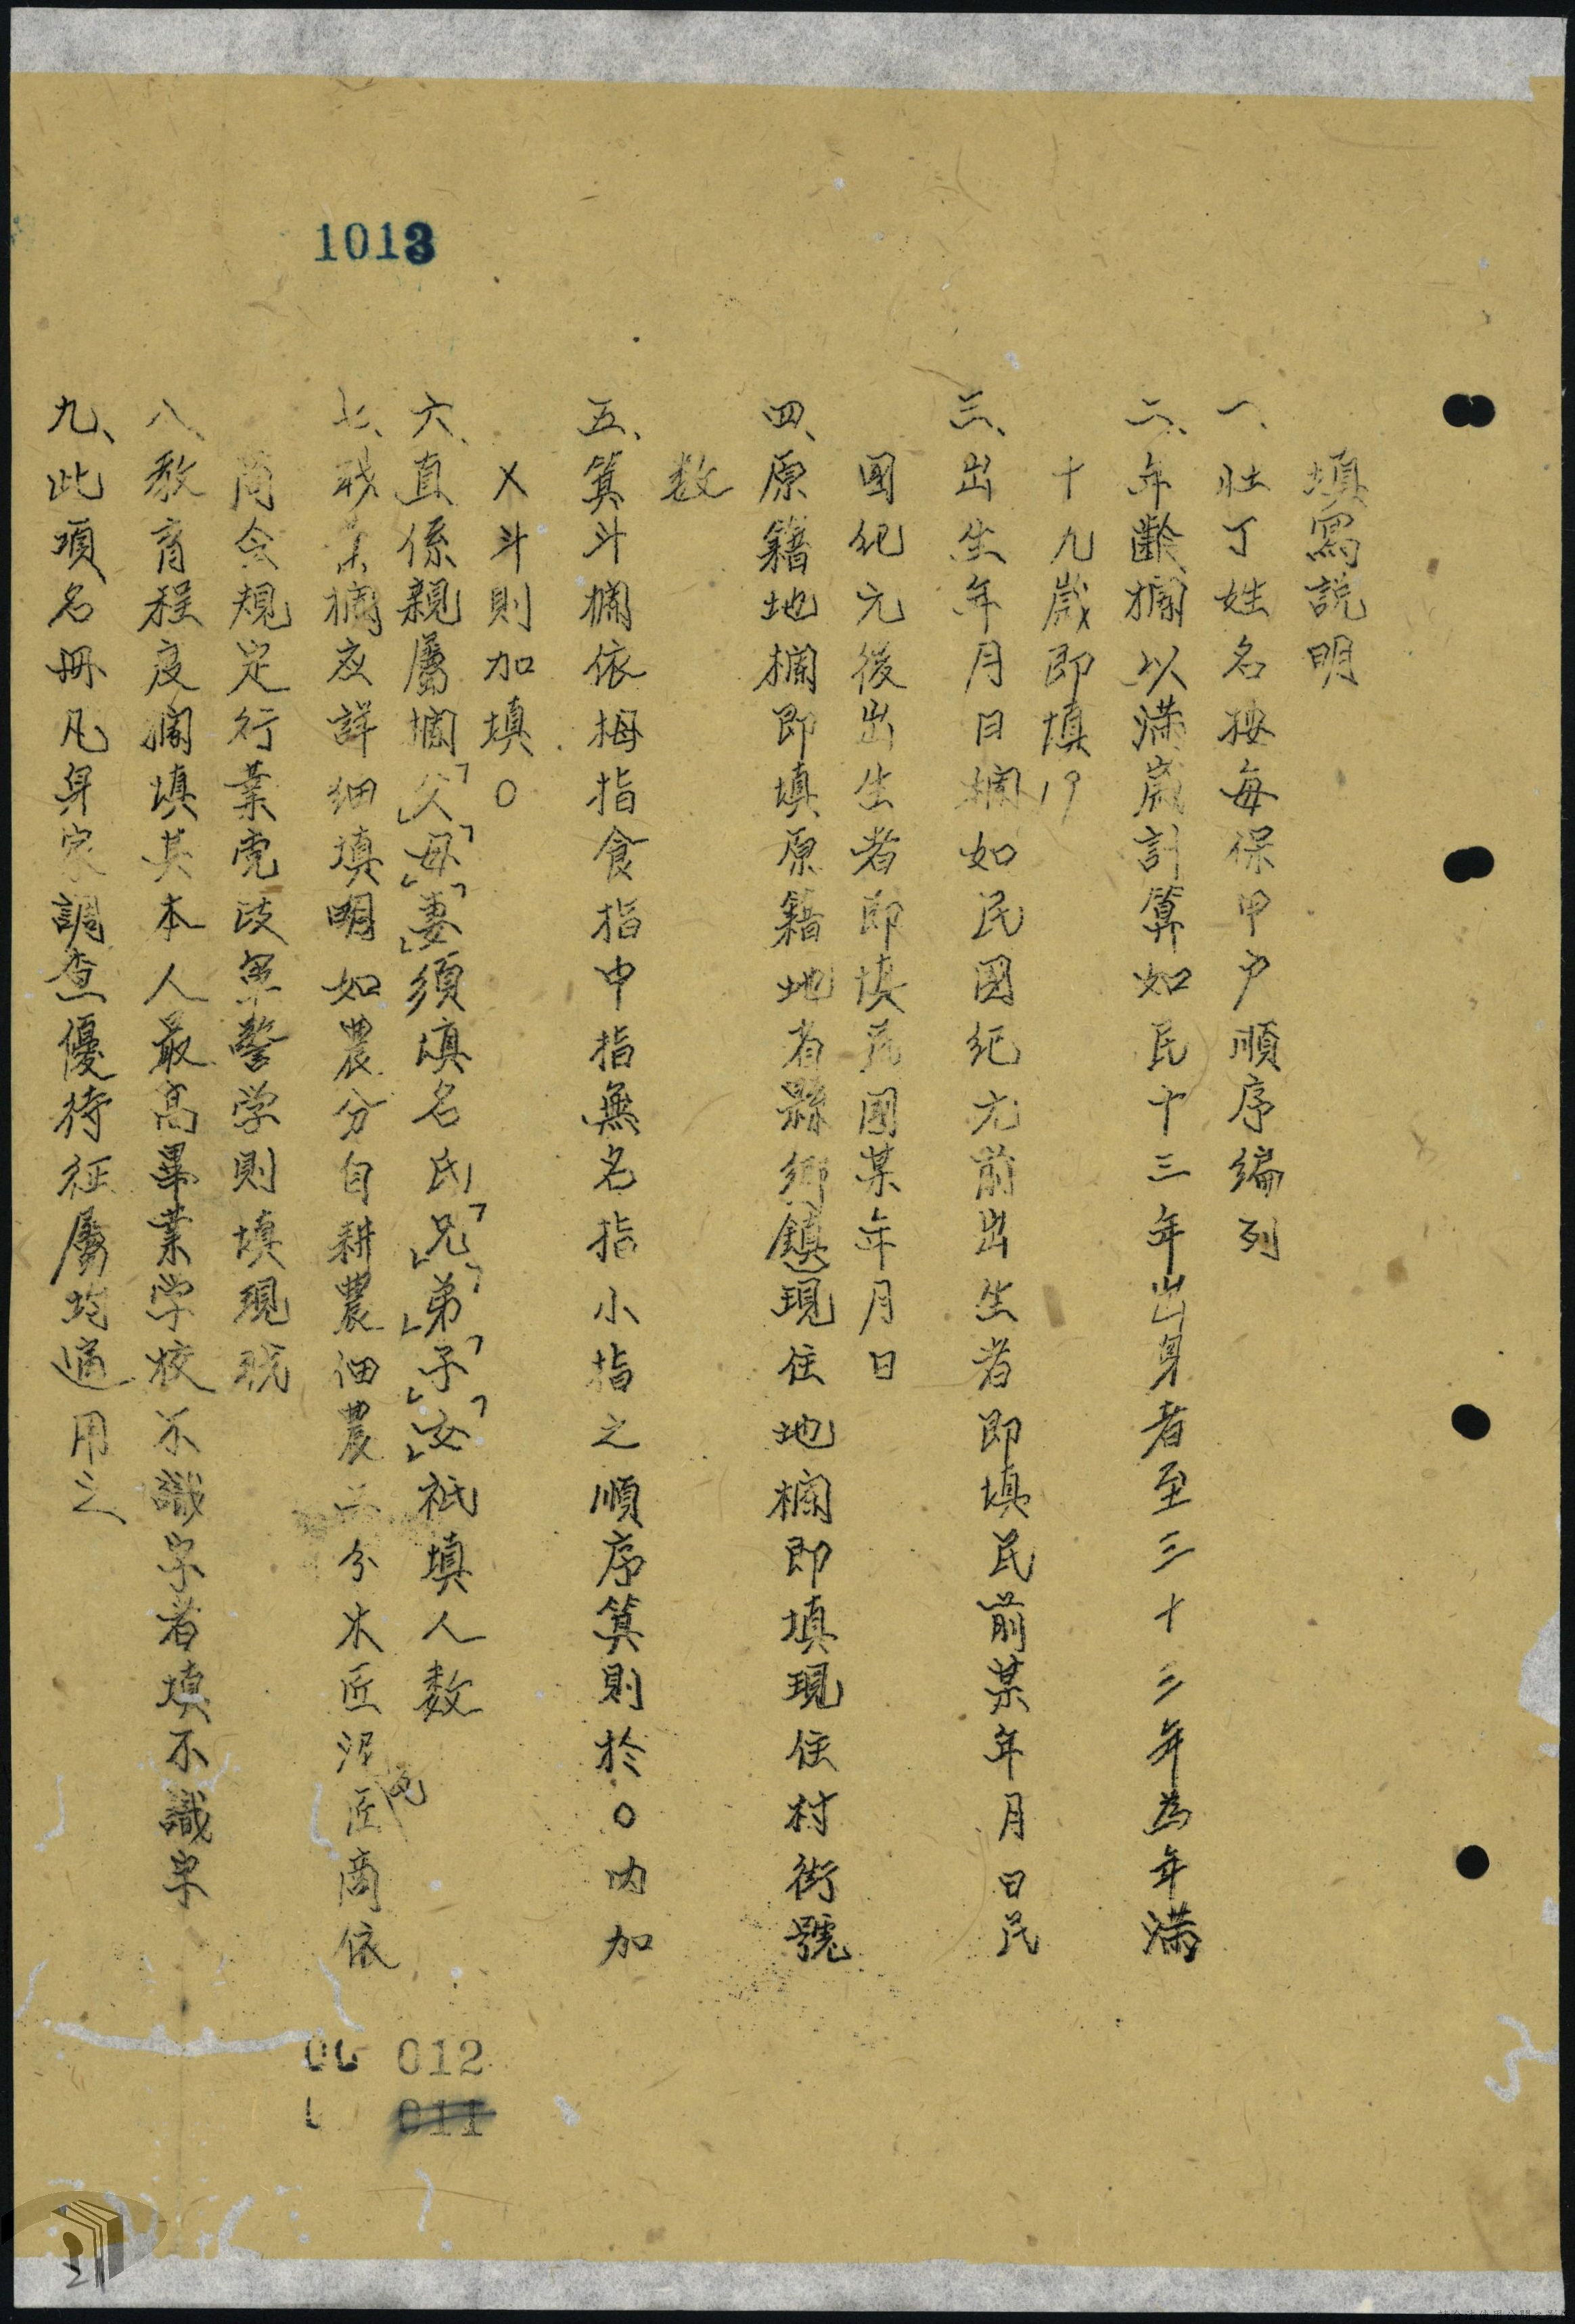 1013
填寫說明
一、壯丁姓名按每保甲户順序编列
二、年齡欄以满嵗計算如民十三年出身者至三十三年為年满
十九嵗即填19
三、出生年月日欄如民國纪元前出生者即填民前某年月日民
國纪元後出生者即填民國某年月日
四、原籍地欄即填原籍地省縣鄉鎮現住地欄即填現住村街號
数
五、箕斗欄依拇指食指中指無名指小指之順序箕則於○内加
X斗則加填○
六、直係親屬欄「父」「母」「妻」須填名氏「兄」「弟」「子」「女」祇填人数
七、职業欄应詳细填明如農分自耕農佃農工分木匠泥瓦匠商依
商会規定行業党政軍警学則填現职
八、教育程度欄填其本人最高畢業学校不識字者填不識字
九、此項名冊凡身家調查優待征屬均適用之
012
011